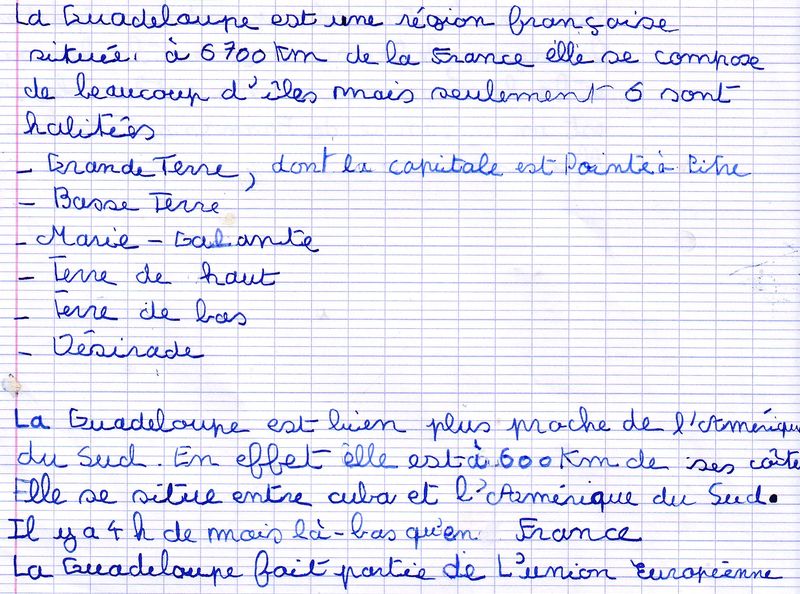 La Guadeloupe est une région française
située à 6700 Km de la France élle se compose
de beaucoup d'îles mais seulement 6 sont
halitées
- Grande Terre, dont la capitale est Pointe à Pitre
- Basse Terre
- Marie - Galante
- Terre de haut
- Terre de bas
- Désirade
La Guadeloupe est bien plus proche de l'Amérique
du Sud. En effet èlle est à 600 Km de ses côte
Elle se situe entre cuba et l'Amérique du Sud.
Il y a 4 h de mois là-bas qu'en France
La Guadeloupe fait partie de L'union Européenne